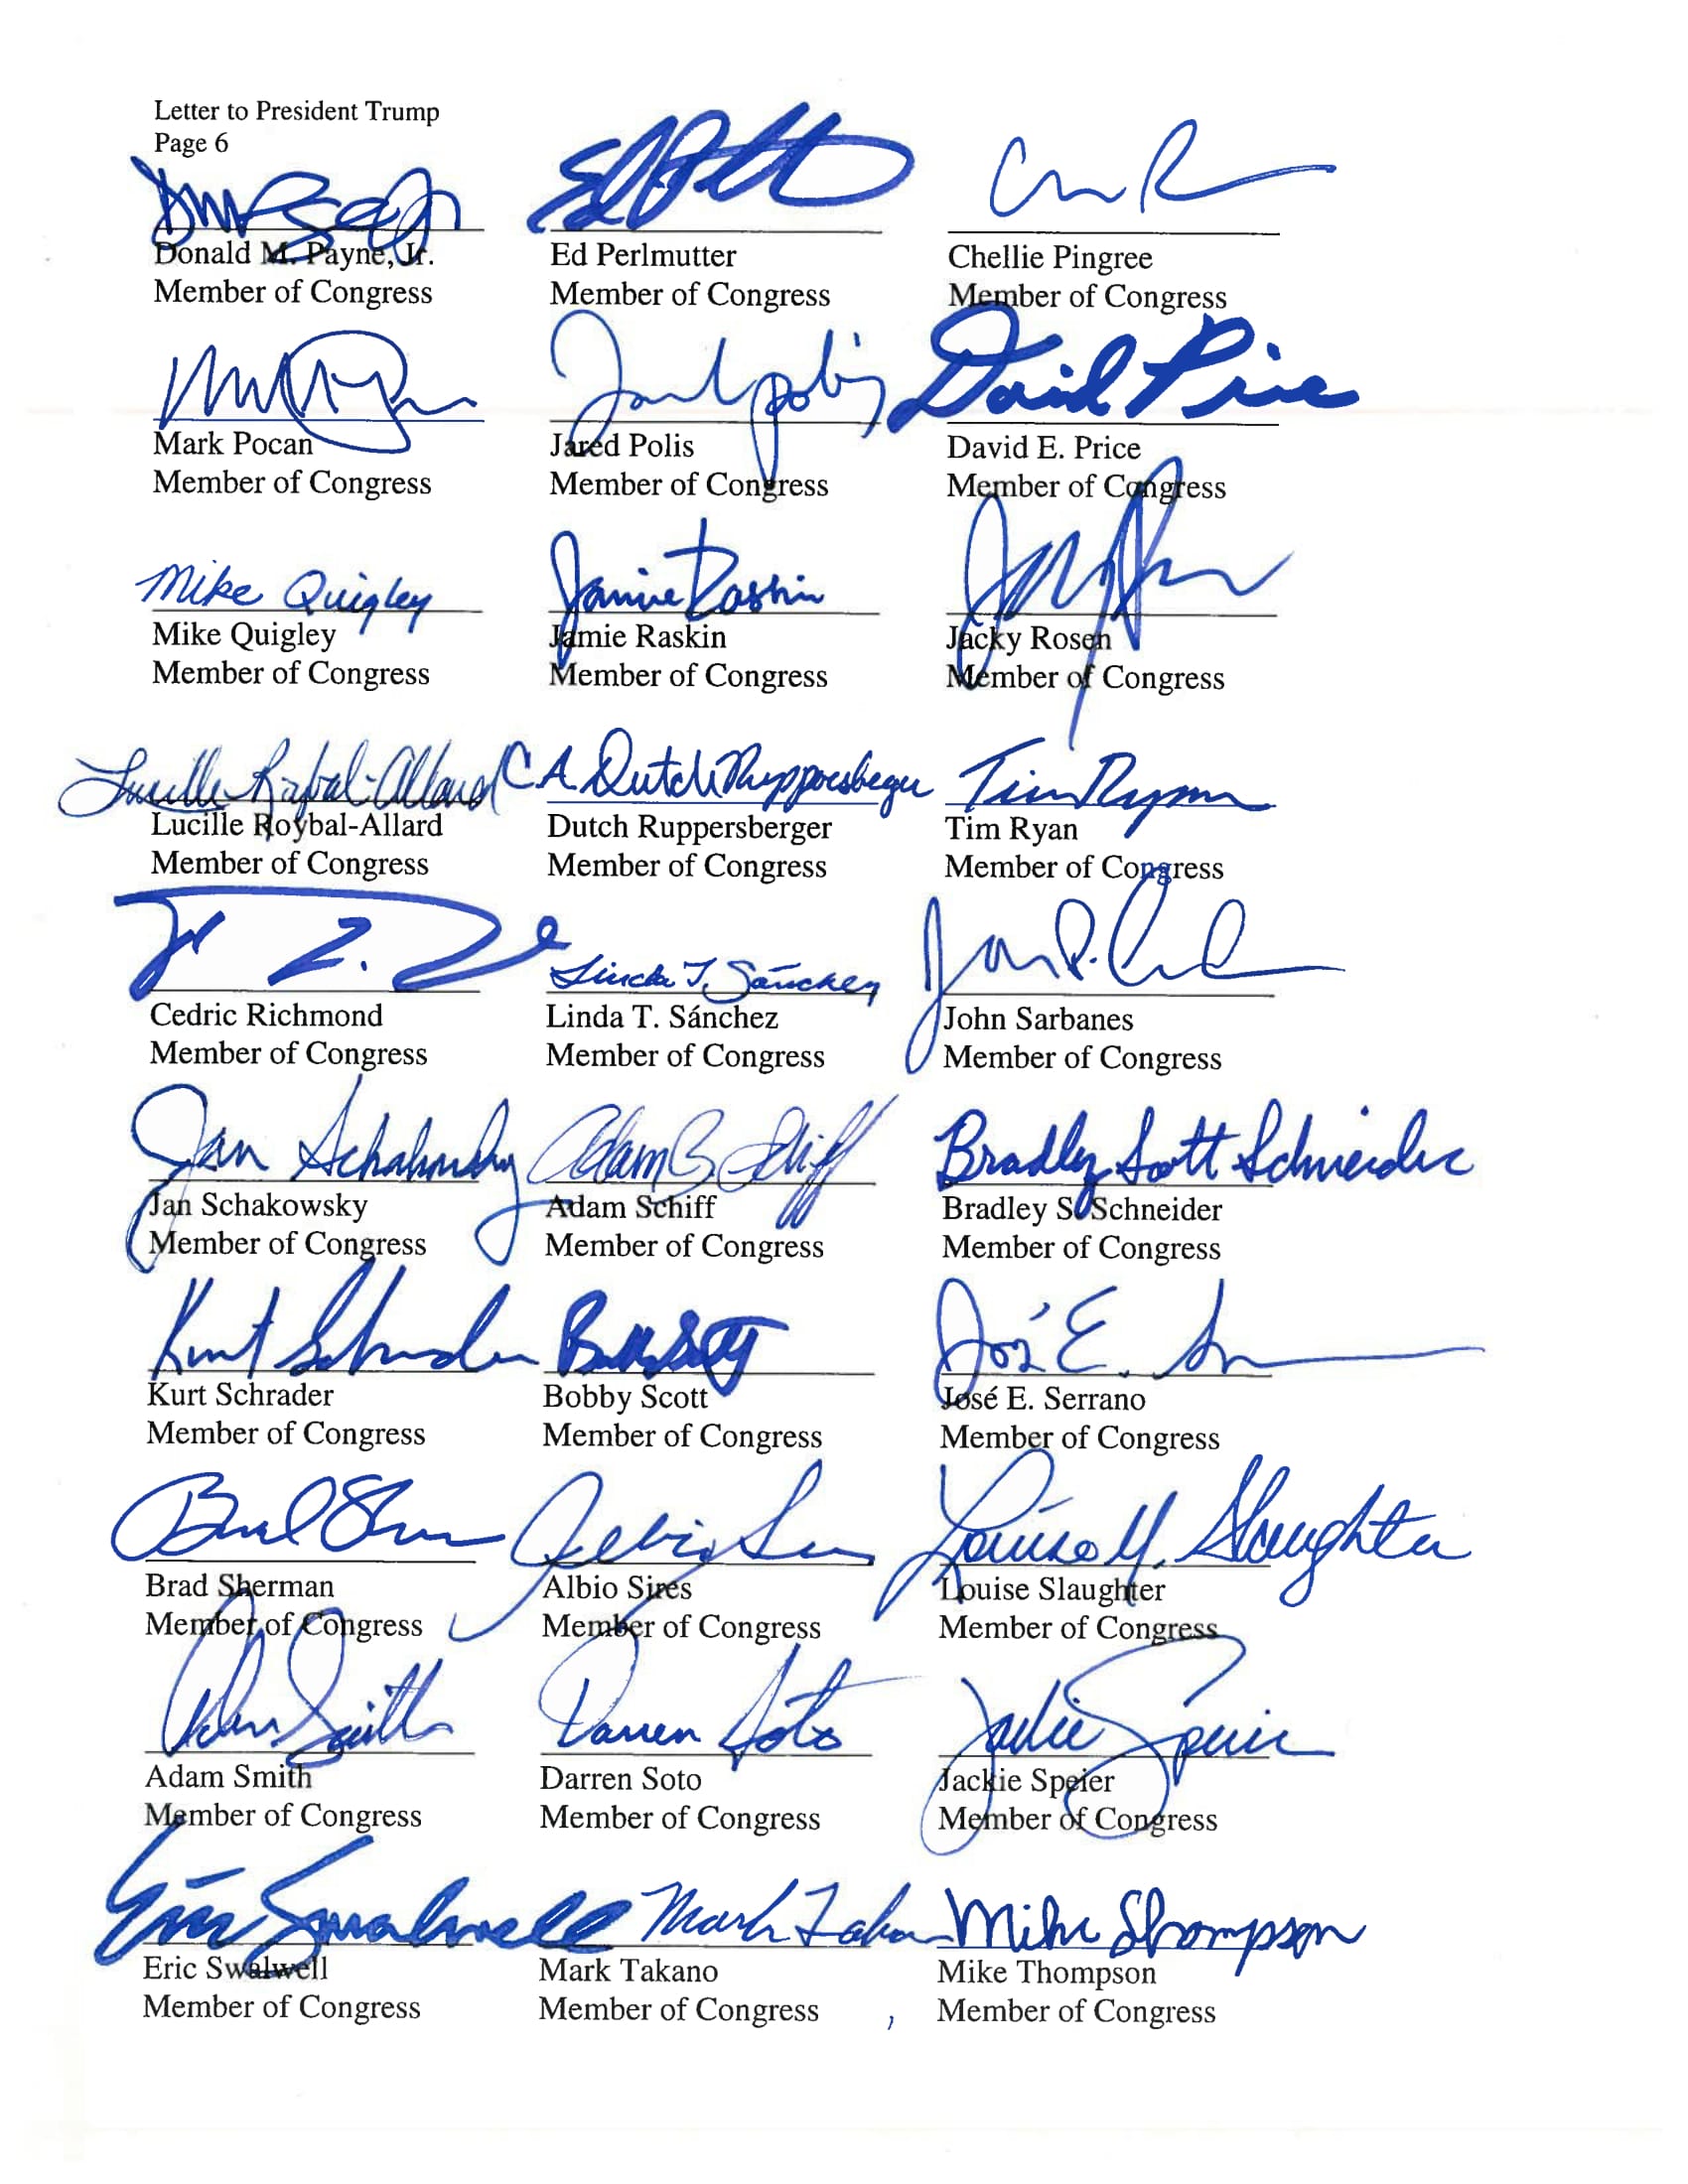 Letter to President Trump
Page 6
Donald M. Payne, Jr.
Member of Congress
Ed Perlmutter
Member of Congress
Chellie Pingree
Member of Congress
Jared Polis
David Price
Mark Pocan
Member of Congress
Jared Polis
Member of Congress
David E. Price
Member of Congress
Mike Quigley
Jamie Raskin
Mike Quigley
Member of Congress
Jamie Raskin
Member of Congress
Jacky Rosen
Member of Congress
Lucille Roybal-Allard
C.A. Dutch Ruppersberger
Tim Ryan
Lucille Roybal-Allard
Member of Congress
Dutch Ruppersberger
Member of Congress
Tim Ryan
Member of Congress
Linda T. Sánchez
Cedric Richmond
Member of Congress
Linda T. Sánchez
Member of Congress
John Sarbanes
Member of Congress
Jan Schakowsky
Adam B Schiff
Bradley Scott Schneider
Jan Schakowsky
Member of Congress
Adam Schiff
Member of Congress
Bradley S. Schneider
Member of Congress
Kurt Schrader
José E.
Kurt Schrader
Member of Congress
Bobby Scott
Member of Congress
José E. Serrano
Member of Congress
Louise M. Slaughter
Brad Sherman
Member of Congress
Albio Sires
Member of Congress
Louise Slaughter
Member of Congress
Adam Smith
Darren Soto
Jackie Speier
Adam Smith
Member of Congress
Darren Soto
Member of Congress
Jackie Speier
Member of Congress
Eric Swalwell
Mark Takano
Mike Thompson
Eric Swalwell
Member of Congress
Mark Takano
Member of Congress
Mike Thompson
Member of Congress